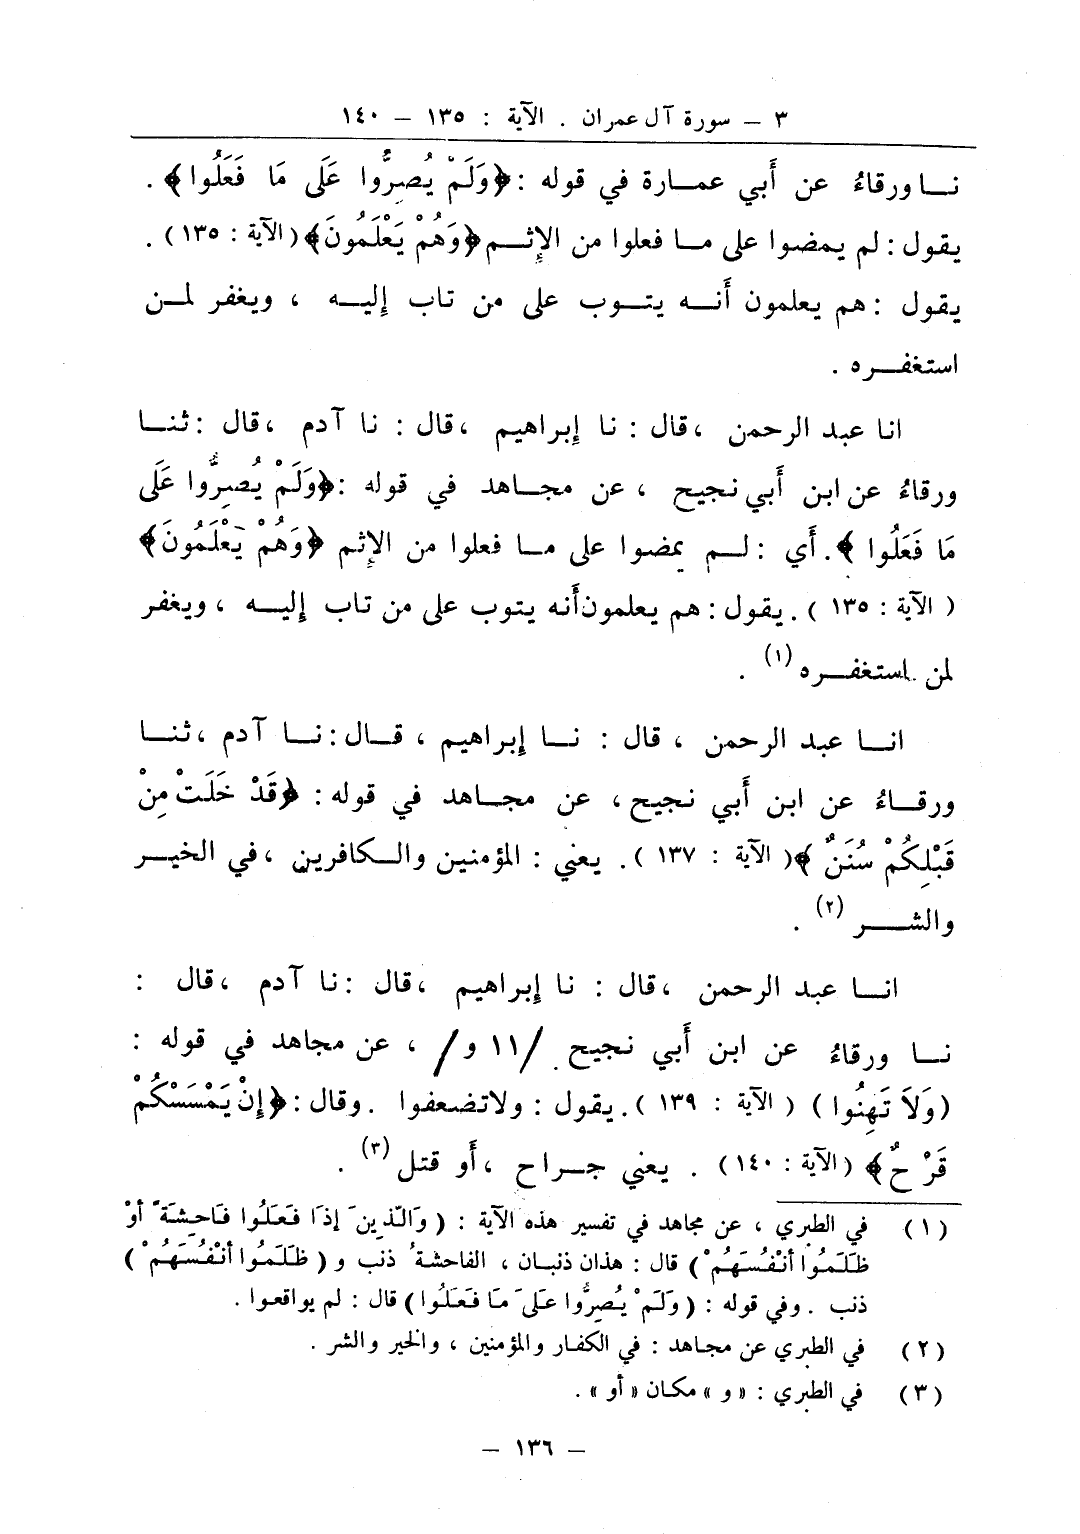 ٣ – سورة آل عمران . الآية : ١٣٥ – ١٤٠
نا ورقاءُ عن أَبي عمارة في قوله : ﴿وَلَمْ يُصِرُّوا عَلَى مَا فَعَلُوا﴾ .
يقول : لم يمضوا على ما فعلوا من الإِثم ﴿وَهُمْ يَعْلَمُونَ﴾ (الآية : ١٣٥) .
يقول : هم يعلمون أَنه يتوب على من تاب إِليه ، ويغفر لمن
استغفره .
انا عبد الرحمن ، قال : نا إِبراهيم ، قال : نا آدم ، قال : ثنا
ورقاءُ عن ابن أَبي نجيح ، عن مجاهد في قوله : ﴿وَلَمْ يُصِرُّوا عَلَى
مَا فَعَلُوا ﴾. أَي : لم يمضوا على ما فعلوا من الإِثم ﴿وَهُمْ يَعْلَمُونَ﴾
( الآية : ١٣٥ ) . يقول : هم يعلمون أَنه يتوب على من تاب إِليه ، ويغفر
لمن استغفره (١) .
انا عبد الرحمن ، قال : نا إِبراهيم ، قال : نا آدم ، ثنا
ورقاءُ عن ابن أَبي نجيح ، عن مجاهد في قوله : ﴿قَدْ خَلَتْ مِنْ
قَبْلِكُمْ سُنَنٌ ﴾ ( الآية : ١٣٧ ) . يعني : المؤمنين والكافرين ، في الخير
والشر (٢) .
انا عبد الرحمن ، قال : نا إِبراهيم ، قال : نا آدم ، قال :
نا ورقاءُ عن ابن أَبي نجيح /١١ و/ ، عن مجاهد في قوله :
(وَلاَ تَهِنُوا ) ( الآية : ١٣٩ ) . يقول : ولا تضعفوا . وقال : ﴿إِنْ يَمْسَسْكُمْ
قَرْحٌ﴾ (الآية : ١٤٠) . يعني جراح ، أَو قتل (٣) .
(١) في الطبري ، عن مجاهد في تفسير هذه الآية : ( وَالَّذِينَ إِذَا فَعَلُوا فَاحِشَةً أَوْ
ظَلَمُوا أَنْفُسَهُمْ ) قال : هذان ذنبان ، الفاحشةُ ذنب و ( ظَلَمُوا أَنْفُسَهُمْ )
ذنب . وفي قوله : ( وَلَمْ يُصِرُّوا عَلَى مَا فَعَلُوا ) قال : لم يواقعوا .
(٢) في الطبري عن مجاهد : في الكفار والمؤمنين ، والخير والشر .
(٣) في الطبري : « و » مكان « أو » .
– ١٣٦ –